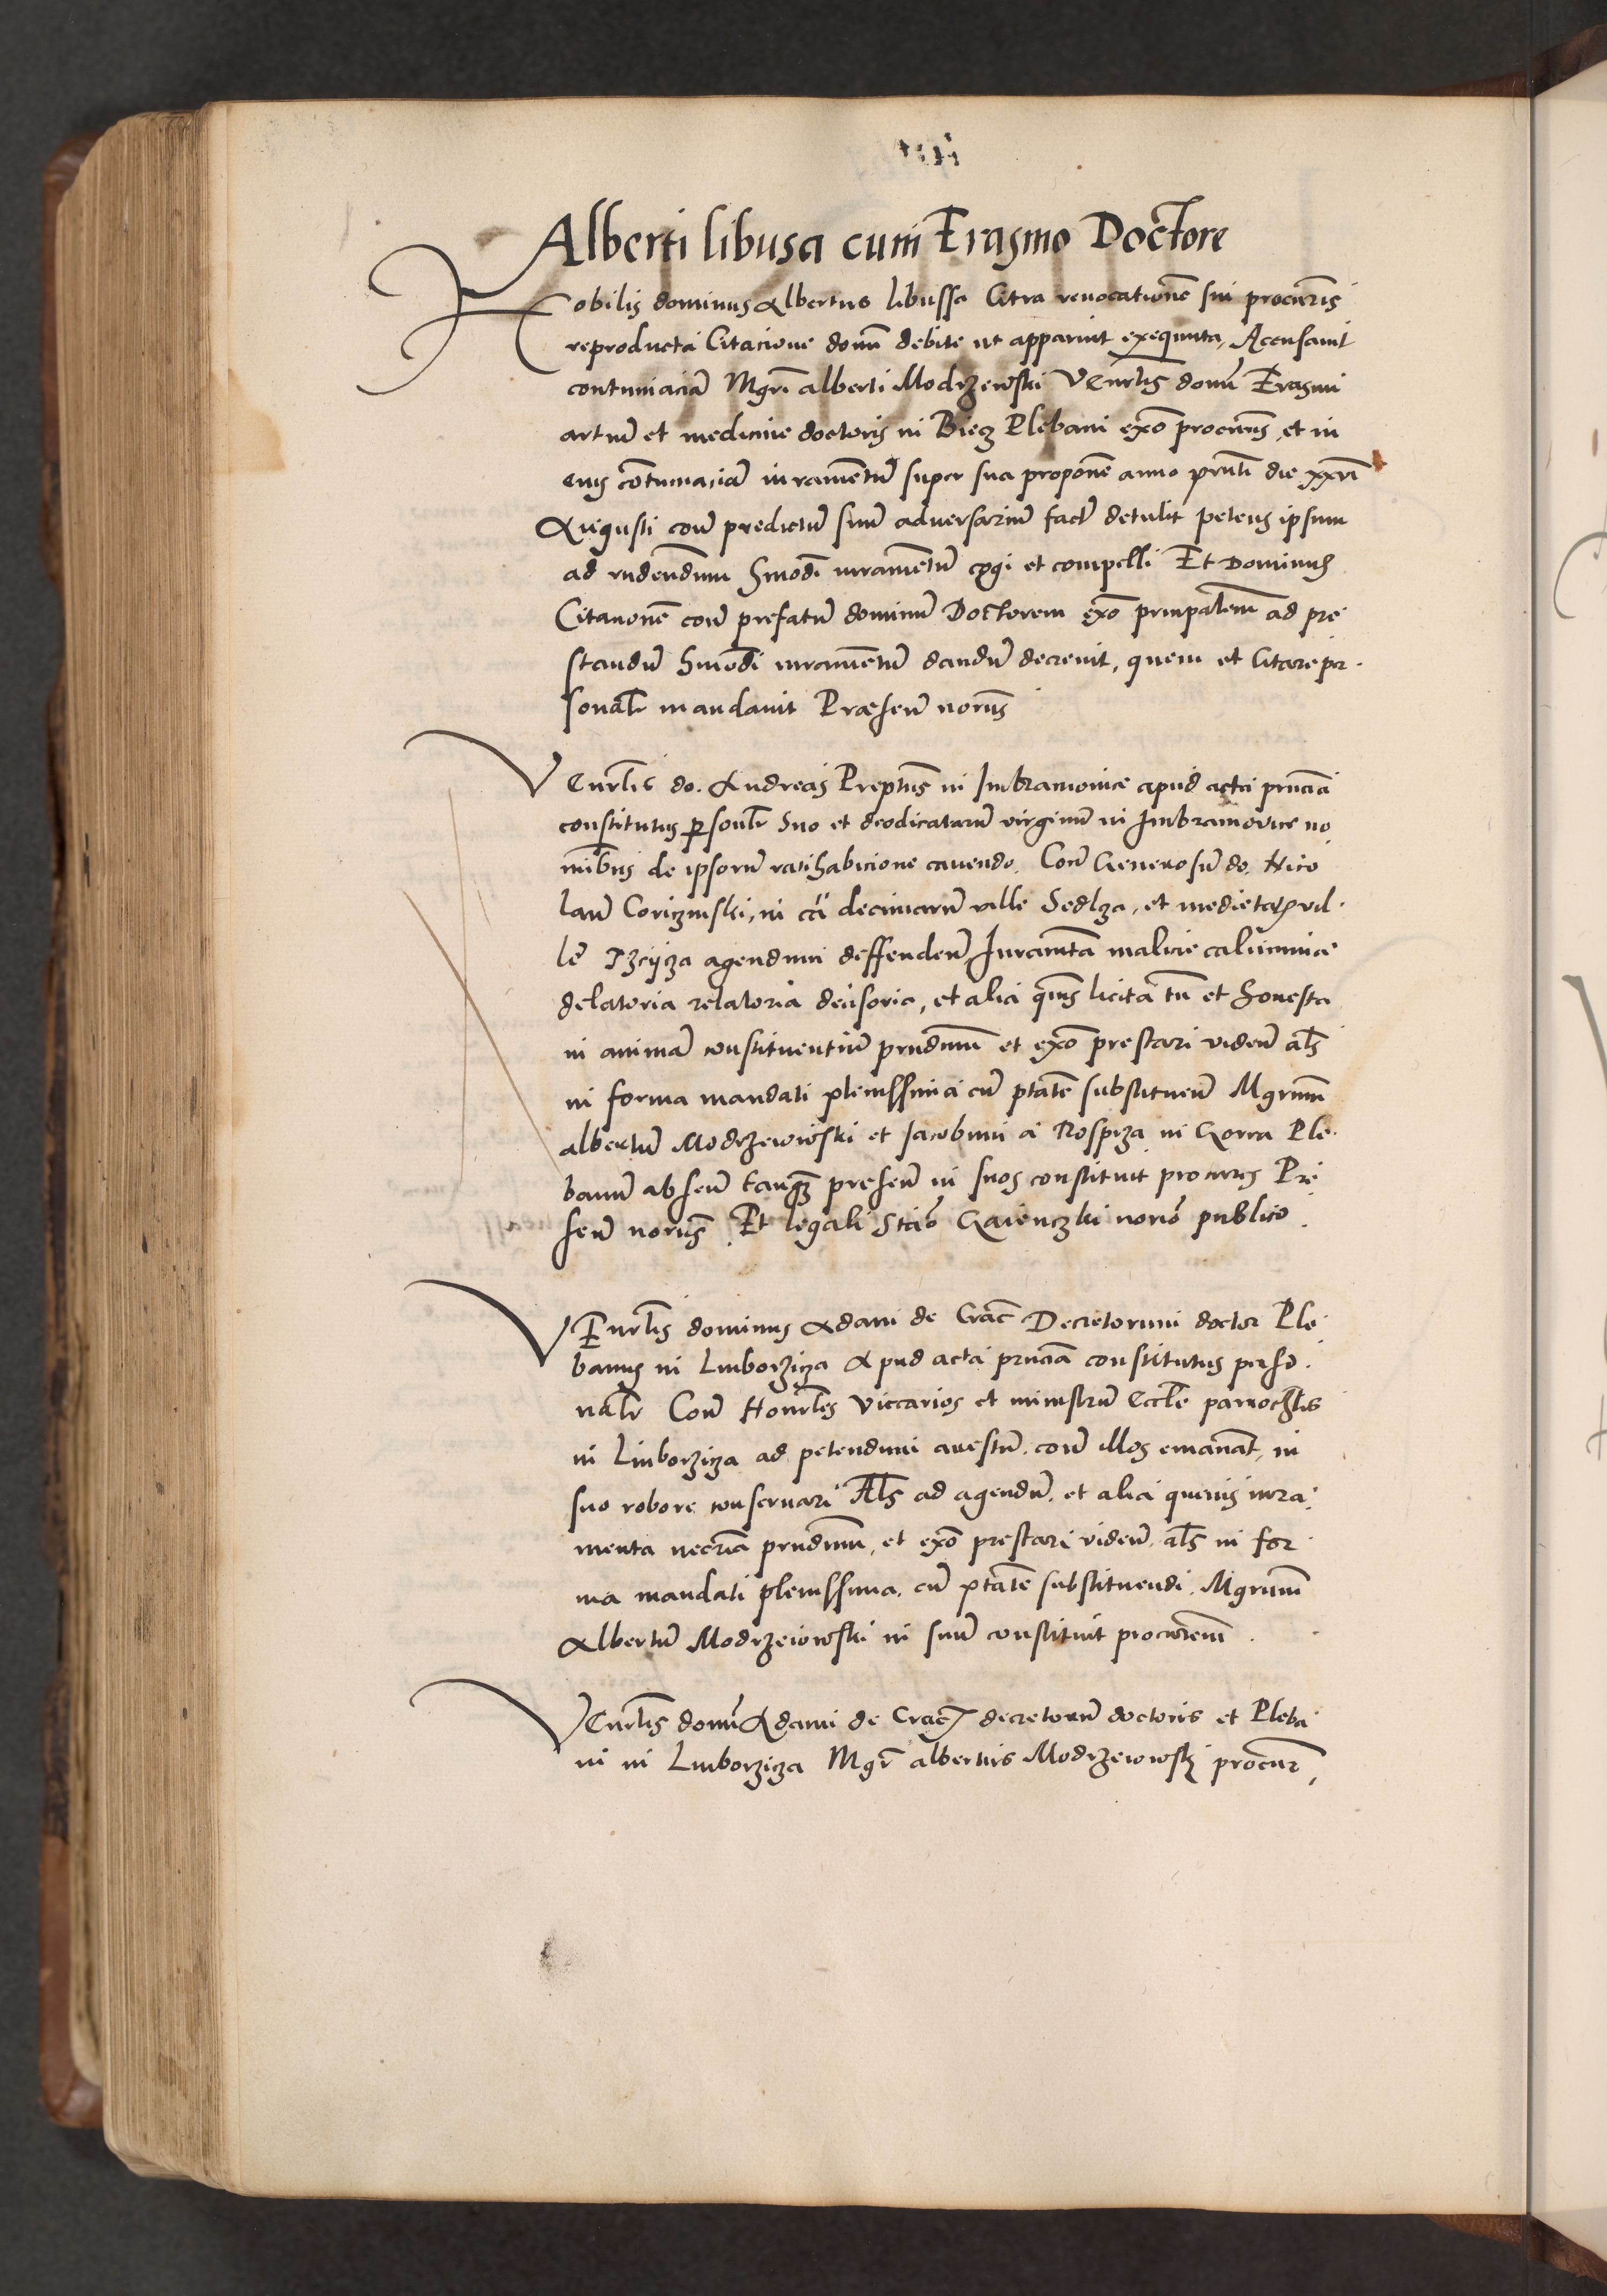 Alberti libusa cum Erasmo Doctore
Nobilis dominus Albertus libussa Citra revocationē sui procur̄is
reproducta Citacione domū debite ut apparuit exequuta, Accusavit
contumaciā Mgr̄i alberti Modrzewski Venr̄lis domī Erasmi
artiū et medicine doctoris in Biecz Plebani ex̄o procur̄is, et in
eius cōtumaciā iuramentū super sua proponē anno pn̄ti die xxvi
Augusti con̄ predictū suū adversariū fact̄ detulit petens ipsum
ad rn̄dendum hmōdi iuramentū cogi et compelli Et Dominus
Citationē con̄ prefatū dominū Doctorem ex̄o prinpalem ad pre
standū hmōdi iuramentū dandū decrevit, quem et Citare per
sonalr̄ mandavit Præsen̄ norijs
Venr̄lis do. Andreas Preptus in Imbramovice apud acta pn̄cia
constitutus personlr̄ Suo et deodicatarū virginū in Imbramovice no
minibus de ipsorū ratihabicione cavendo. Con̄ Generosū do. Nico
laū Corizinski, in cā decimarū ville Sedlza, et medietatis vil
le Trzyiza agendum deffenden̄ Iuramēta malicie calumnie
delatoria relatoria decisoria, et alia quevis licita tn̄ et honesta
in animā constituentiū prn̄dmm et ex̄o prestari viden̄ als̄
in forma mandati plenissima cū ptatē substituen̄ Mgrum
albertū Modrzeiowski et Jacobum a Rospza in Gorra Ple
banū absen̄ tanquā presen̄ in suos constituit procur̄is Pre
sen̄ norijs Et legali Stāo Gaienczki nor̄io publico
Venr̄lis dominus Adam de Crac̄ Decretorum doctor Ple
banus in Luborziza Apud acta pn̄cia constitutus perso
nalr̄ Con̄ Honr̄les Viccarios et ministrū Eccl̄e parrochl̄is
in Luborziza ad petendum arestū. con̄ illos emanat̄, in
suo robore conservari Als̄ ad agendū. et alia quevis iura
menta necr̄ia prn̄dmm, et ex̄o prestari viden̄. als̄ in for
ma mandati plenissima. cū ptatē substituendi. Mgrum
Albertū Modrzeiowski in suū constituit procur̄em
Venr̄lis domī Adami de Crac̄ decretorū doctoris et Pleba
ni in Luborziza Mgr̄ albertus Modrzeiowski procur̄